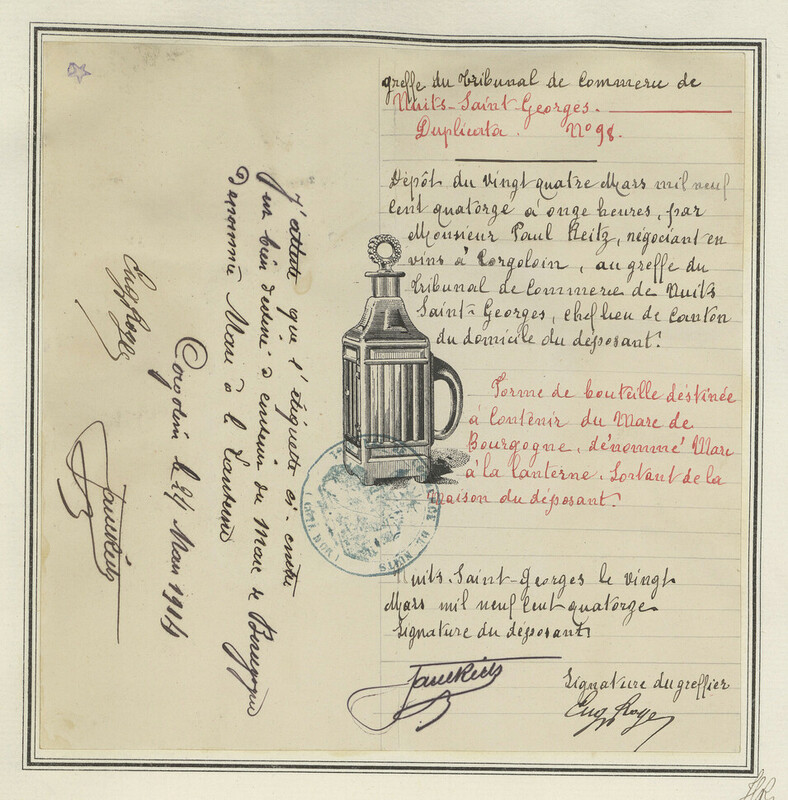 greffe du Tribunal de Commerce de
Nuits-Saint-Georges.
Duplicata. N° 98.
Dépôt du vingt quatre Mars mil neuf
cent quatorze à onze heures, par
Monsieur Paul Reitz, négociant en
vins à Corgoloin, au greffe du
Tribunal de Commerce de Nuits
Saint-Georges, chef lieu de Canton
du domicile du déposant.
Forme de bouteille déstinée
à Contenir du Marc de
Bourgogne, dénommé Marc
à la Lanterne. Sortant de la
Maison du déposant.
Nuits-Saint-Georges le vingt
Mars mil neuf cent quatorze
Signature du déposant
Paul Reitz
Signature du greffier
Eug Roye
J'atteste que l'étiquette ci-contre
est bien destiné à contenir du Marc de Bourgogne
Dénommée Marc à la Lanterne
Corgoloin le 24 Mars 1914
Eug Roye
Paul Reitz
CÔTE D'OR
DE NUITS